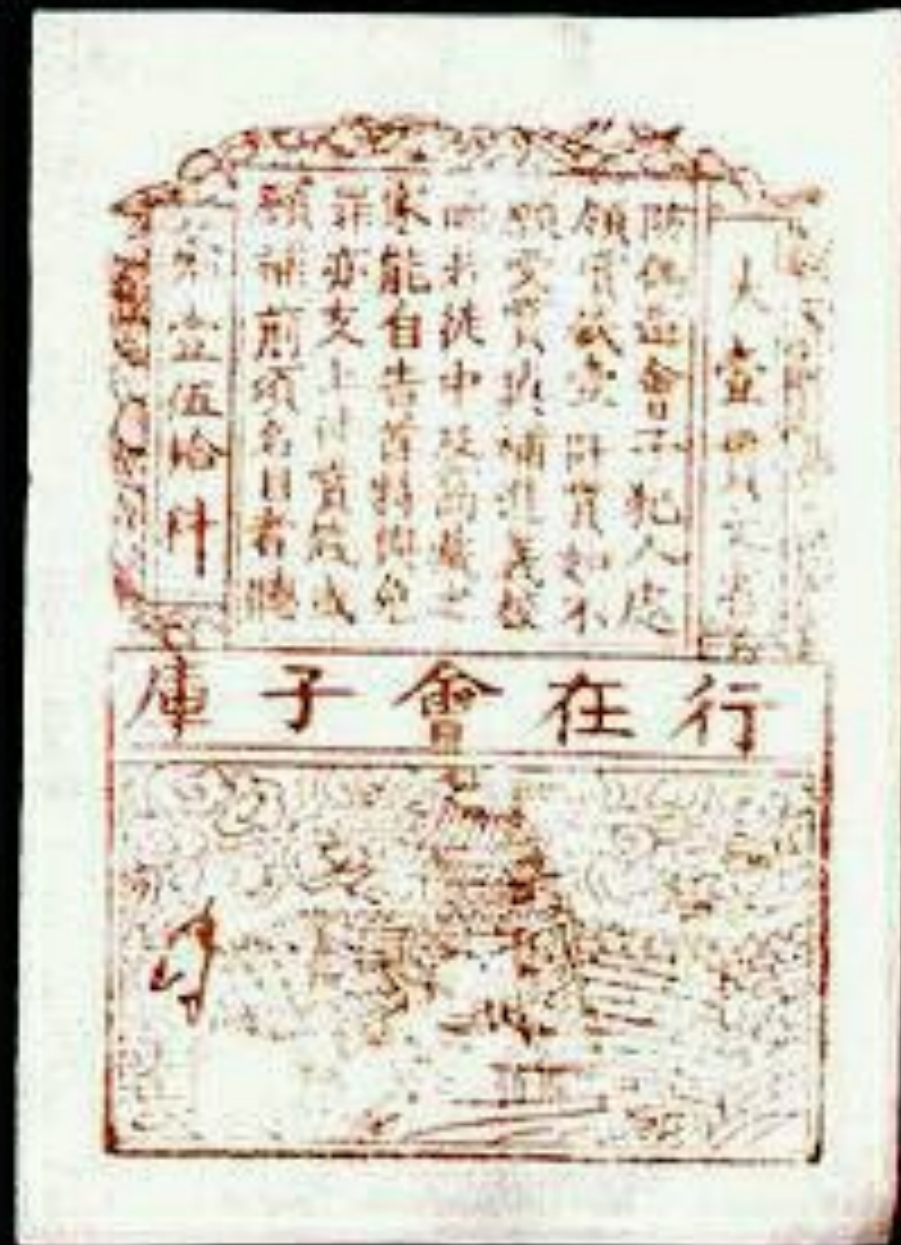 大壹
偽造會子犯人處
賞錢壹阡貫如不
願支賞與補進義校
徒中及窩藏之
家能自告首特與免
罪亦支上件賞錢或
願補前項名目者聽
第壹伍拾料
行在會子庫